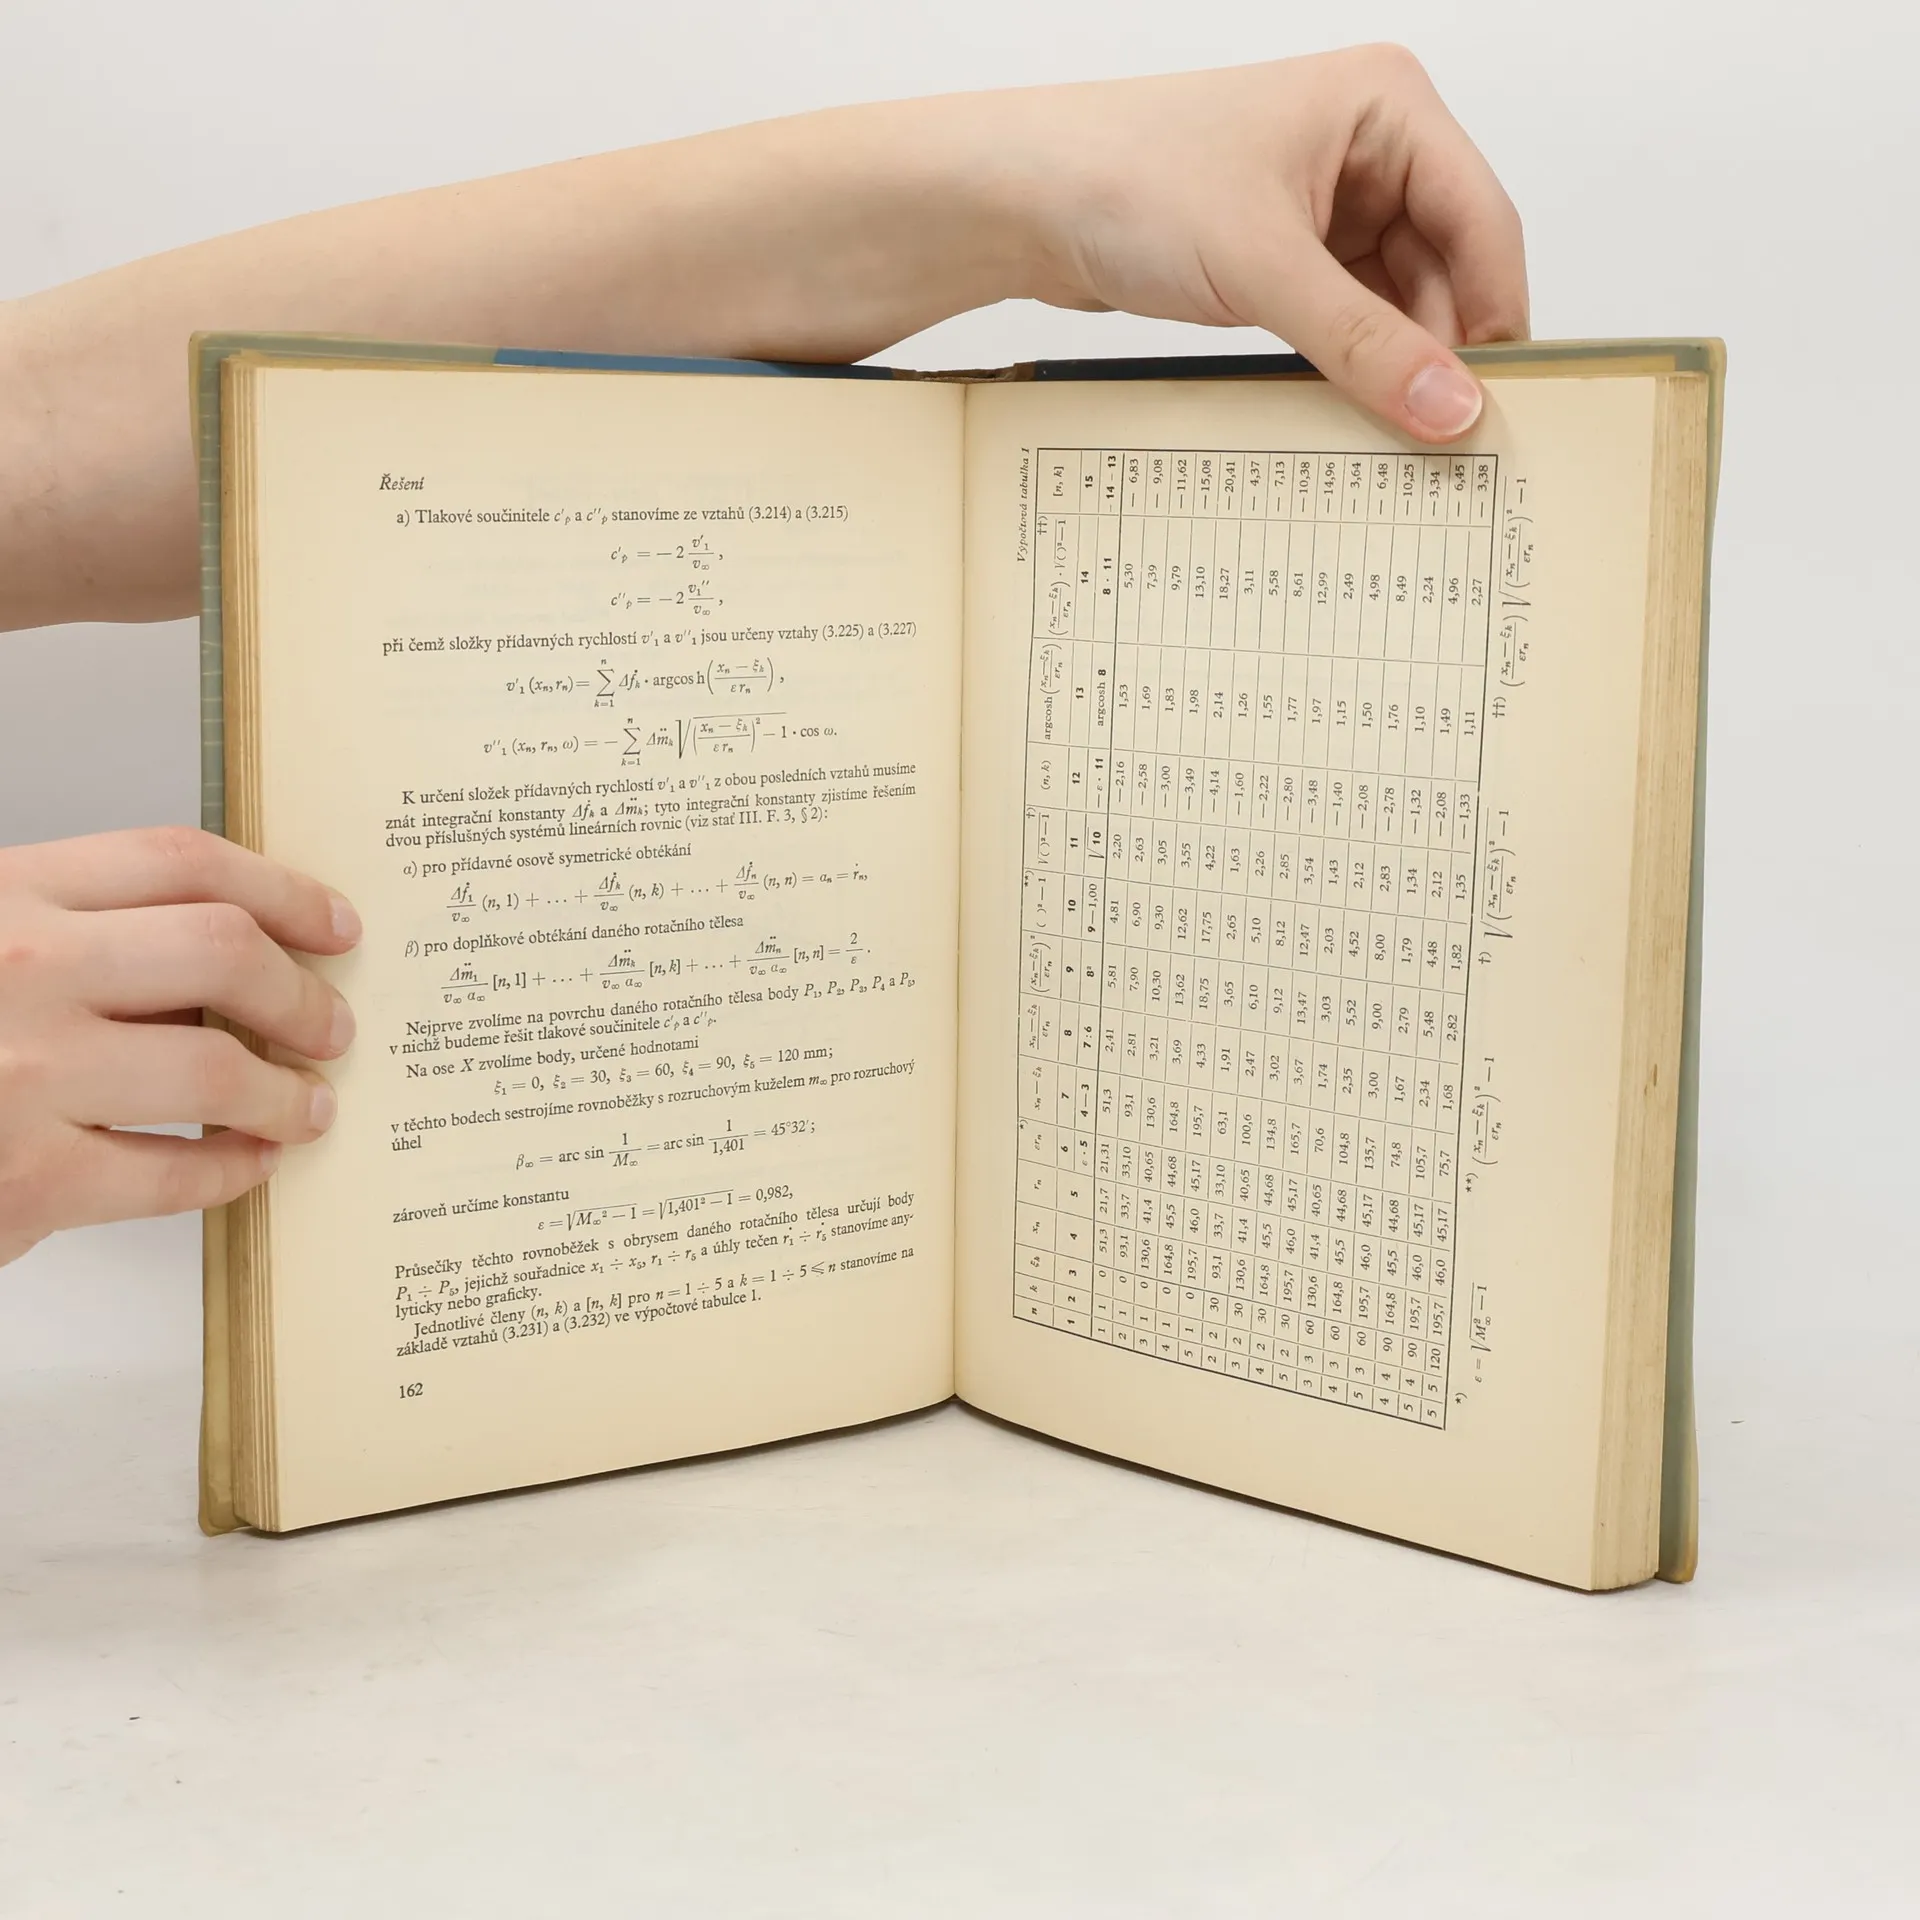 Řešení
a) Tlakové součinitele c′ₚ a c″ₚ stanovíme ze vztahů (3.214) a (3.215)
c′ₚ = — 2 v′₁/v∞ ,
c″ₚ = — 2 v₁″/v∞ ,
při čemž složky přídavných rychlostí v′₁ a v″₁ jsou určeny vztahy (3.225) a (3.227)
v′₁ (xₙ, rₙ) = ∑ₖ₌₁ⁿ Δḟₖ · argcos h ((xₙ — ξₖ)/(ε rₙ)) ,
v″₁ (xₙ, rₙ, ω) = — ∑ₖ₌₁ⁿ Δm̈ₖ √(((xₙ — ξₖ)/(ε rₙ))² — 1) · cos ω.
K určení složek přídavných rychlostí v′₁ a v″₁ z obou posledních vztahů musíme
znát integrační konstanty Δḟₖ a Δm̈ₖ; tyto integrační konstanty zjistíme řešením
dvou příslušných systémů lineárních rovnic (viz stať III. F. 3, § 2):
α) pro přídavné osově symetrické obtékání
Δḟ₁/v∞ (n, 1) + ... + Δḟₖ/v∞ (n, k) + ... + Δḟₙ/v∞ (n, n) = αₙ = ṙₙ,
β) pro doplňkové obtékání daného rotačního tělesa
Δm̈₁/(v∞ α∞) [n, 1] + ... + Δm̈ₖ/(v∞ α∞) [n, k] + ... + Δm̈ₙ/(v∞ α∞) [n, n] = 2/ε .
Nejprve zvolíme na povrchu daného rotačního tělesa body P₁, P₂, P₃, P₄ a P₅,
v nichž budeme řešit tlakové součinitele c′ₚ a c″ₚ.
Na ose X zvolíme body, určené hodnotami
ξ₁ = 0, ξ₂ = 30, ξ₃ = 60, ξ₄ = 90, ξ₅ = 120 mm;
v těchto bodech sestrojíme rovnoběžky s rozruchovým kuželem m∞ pro rozruchový
úhel
β∞ = arc sin 1/M∞ = arc sin 1/1,401 = 45°32′;
zároveň určíme konstantu
ε = √(M∞² — 1) = √(1,401² — 1) = 0,982,
Průsečíky těchto rovnoběžek s obrysem daného rotačního tělesa určují body
P₁ ÷ P₅, jejichž souřadnice x₁ ÷ x₅, r₁ ÷ r₅ a úhly tečen ṙ₁ ÷ ṙ₅ stanovíme any-
lyticky nebo graficky.
Jednotlivé členy (n, k) a [n, k] pro n = 1 ÷ 5 a k = 1 ÷ 5 ⩽ n stanovíme na
základě vztahů (3.231) a (3.232) ve výpočtové tabulce 1.
162
Výpočtová tabulka 1
n k ξₖ xₙ rₙ εrₙ *) xₙ — ξₖ (xₙ — ξₖ)/(εrₙ) ((xₙ — ξₖ)/(εrₙ))² ( )² — 1 **) √(( )² — 1) †) (n, k) argcosh ((xₙ — ξₖ)/(εrₙ)) ((xₙ — ξₖ)/(εrₙ)) · √(( )² — 1) ††) [n, k]
1 2 3 4 5 6 7 8 9 10 11 12 13 14 15
ε · 5 4 — 3 7 : 6 8² 9 — 1,00 √10 — ε · 11 argcosh 8 8 · 11 14 – 13
1 1 0 51,3 21,7 21,31 51,3 2,41 5,81 4,81 2,20 — 2,16 1,53 5,30 — 6,83
2 1 0 93,1 33,7 33,10 93,1 2,81 7,90 6,90 2,63 — 2,58 1,69 7,39 — 9,08
3 1 0 130,6 41,4 40,65 130,6 3,21 10,30 9,30 3,05 — 3,00 1,83 9,79 — 11,62
4 1 0 164,8 45,5 44,68 164,8 3,69 13,62 12,62 3,55 — 3,49 1,98 13,10 — 15,08
5 1 0 195,7 46,0 45,17 195,7 4,33 18,75 17,75 4,22 — 4,14 2,14 18,27 — 20,41
2 2 30 93,1 33,7 33,10 63,1 1,91 3,65 2,65 1,63 — 1,60 1,26 3,11 — 4,37
3 2 30 130,6 41,4 40,65 100,6 2,47 6,10 5,10 2,26 — 2,22 1,55 5,58 — 7,13
4 2 30 164,8 45,5 44,68 134,8 3,02 9,12 8,12 2,85 — 2,80 1,77 8,61 — 10,38
5 2 30 195,7 46,0 45,17 165,7 3,67 13,47 12,47 3,54 — 3,48 1,97 12,99 — 14,96
3 3 60 130,6 41,4 40,65 70,6 1,74 3,03 2,03 1,43 — 1,40 1,15 2,49 — 3,64
4 3 60 164,8 45,5 44,68 104,8 2,35 5,52 4,52 2,12 — 2,08 1,50 4,98 — 6,48
5 3 60 195,7 46,0 45,17 135,7 3,00 9,00 8,00 2,83 — 2,78 1,76 8,49 — 10,25
4 4 90 164,8 45,5 44,68 74,8 1,67 2,79 1,79 1,34 — 1,32 1,10 2,24 — 3,34
5 4 90 195,7 46,0 45,17 105,7 2,34 5,48 4,48 2,12 — 2,08 1,49 4,96 — 6,45
5 5 120 195,7 46,0 45,17 75,7 1,68 2,82 1,82 1,35 — 1,33 1,11 2,27 — 3,38
*) ε = √(M∞² — 1) **) ((xₙ — ξₖ)/(εrₙ))² — 1 †) √(((xₙ — ξₖ)/(εrₙ))² — 1) ††) ((xₙ — ξₖ)/(εrₙ)) √(((xₙ — ξₖ)/(εrₙ))² — 1)